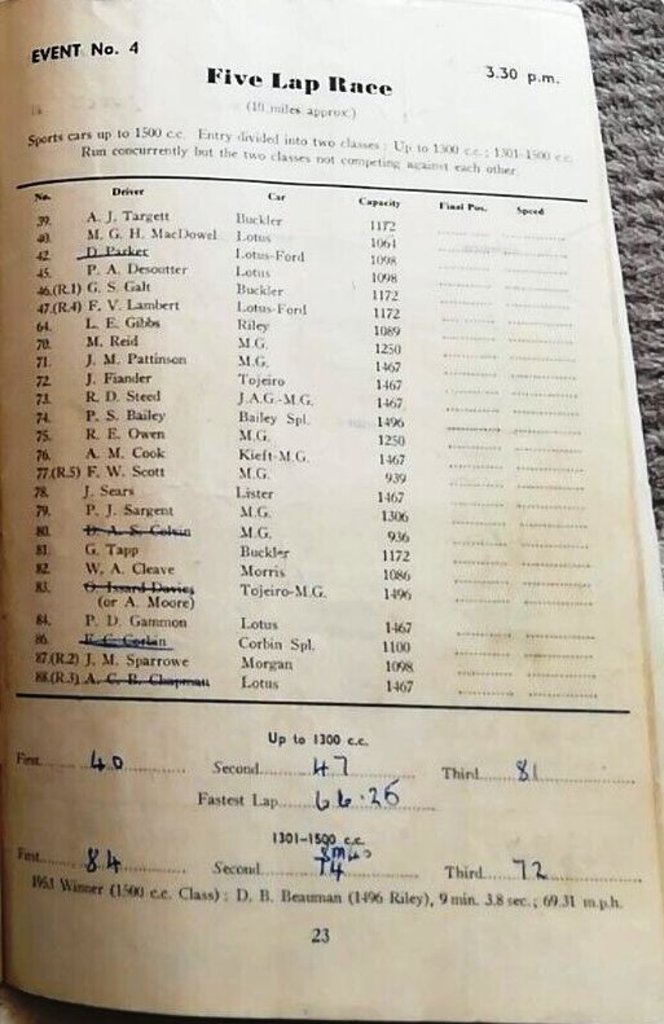 EVENT No. 4
3.30 p.m.
Five Lap Race
(10 miles approx.)
Sports cars up to 1500 c.c. Entry divided into two classes: Up to 1300 c.c.; 1301-1500 c.c.
Run concurrently but the two classes not competing against each other
No. Driver Car Capacity Final Pos. Speed
39. A. J. Targett Buckler 1172
40. M. G. H. MacDowel Lotus 1061
42. D. Parker Lotus-Ford 1098
45. P. A. Desoutter Lotus 1098
46.(R.1) G. S. Galt Buckler 1172
47.(R.4) F. V. Lambert Lotus-Ford 1172
64. L. E. Gibbs Riley 1089
70. M. Reid M.G. 1250
71. J. M. Pattinson M.G. 1467
72. J. Fiander Tojeiro 1467
73. R. D. Steed J.A.G.-M.G. 1467
74. P. S. Bailey Bailey Spl. 1496
75. R. E. Owen M.G. 1250
76. A. M. Cook Kieft-M.G. 1467
77.(R.5) F. W. Scott M.G. 939
78. J. Sears Lister 1467
79. P. J. Sargent M.G. 1306
80. D. A. S. Colvin M.G. 936
81. G. Tapp Buckler 1172
82. W. A. Cleave Morris 1086
83. O. Issard Davies Tojeiro-M.G. 1496
(or A. Moore)
84. P. D. Gammon Lotus 1467
86. E. C. Corbin Corbin Spl. 1100
87.(R.2) J. M. Sparrowe Morgan 1098
88.(R.3) A. C. B. Chapman Lotus 1467
Up to 1300 c.c.
First 40 Second 47 Third 81
Fastest Lap 66.26
1301-1500 c.c.
First 84 Second 74 Third 72
1953 Winner (1500 c.c. Class): D. B. Beauman (1496 Riley), 9 min. 3.8 sec.; 69.31 m.p.h.
23